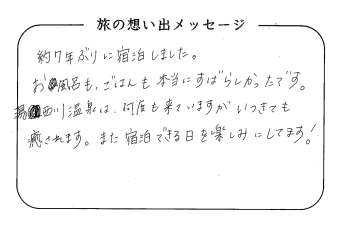 旅の想い出メッセージ
約7年ぶりに宿泊しました。
お風呂も、ごはんも本当にすばらしかったです。
湯西川温泉は、何度も来ていますがいつきても
癒されます。また宿泊できる日を楽しみにしてます!